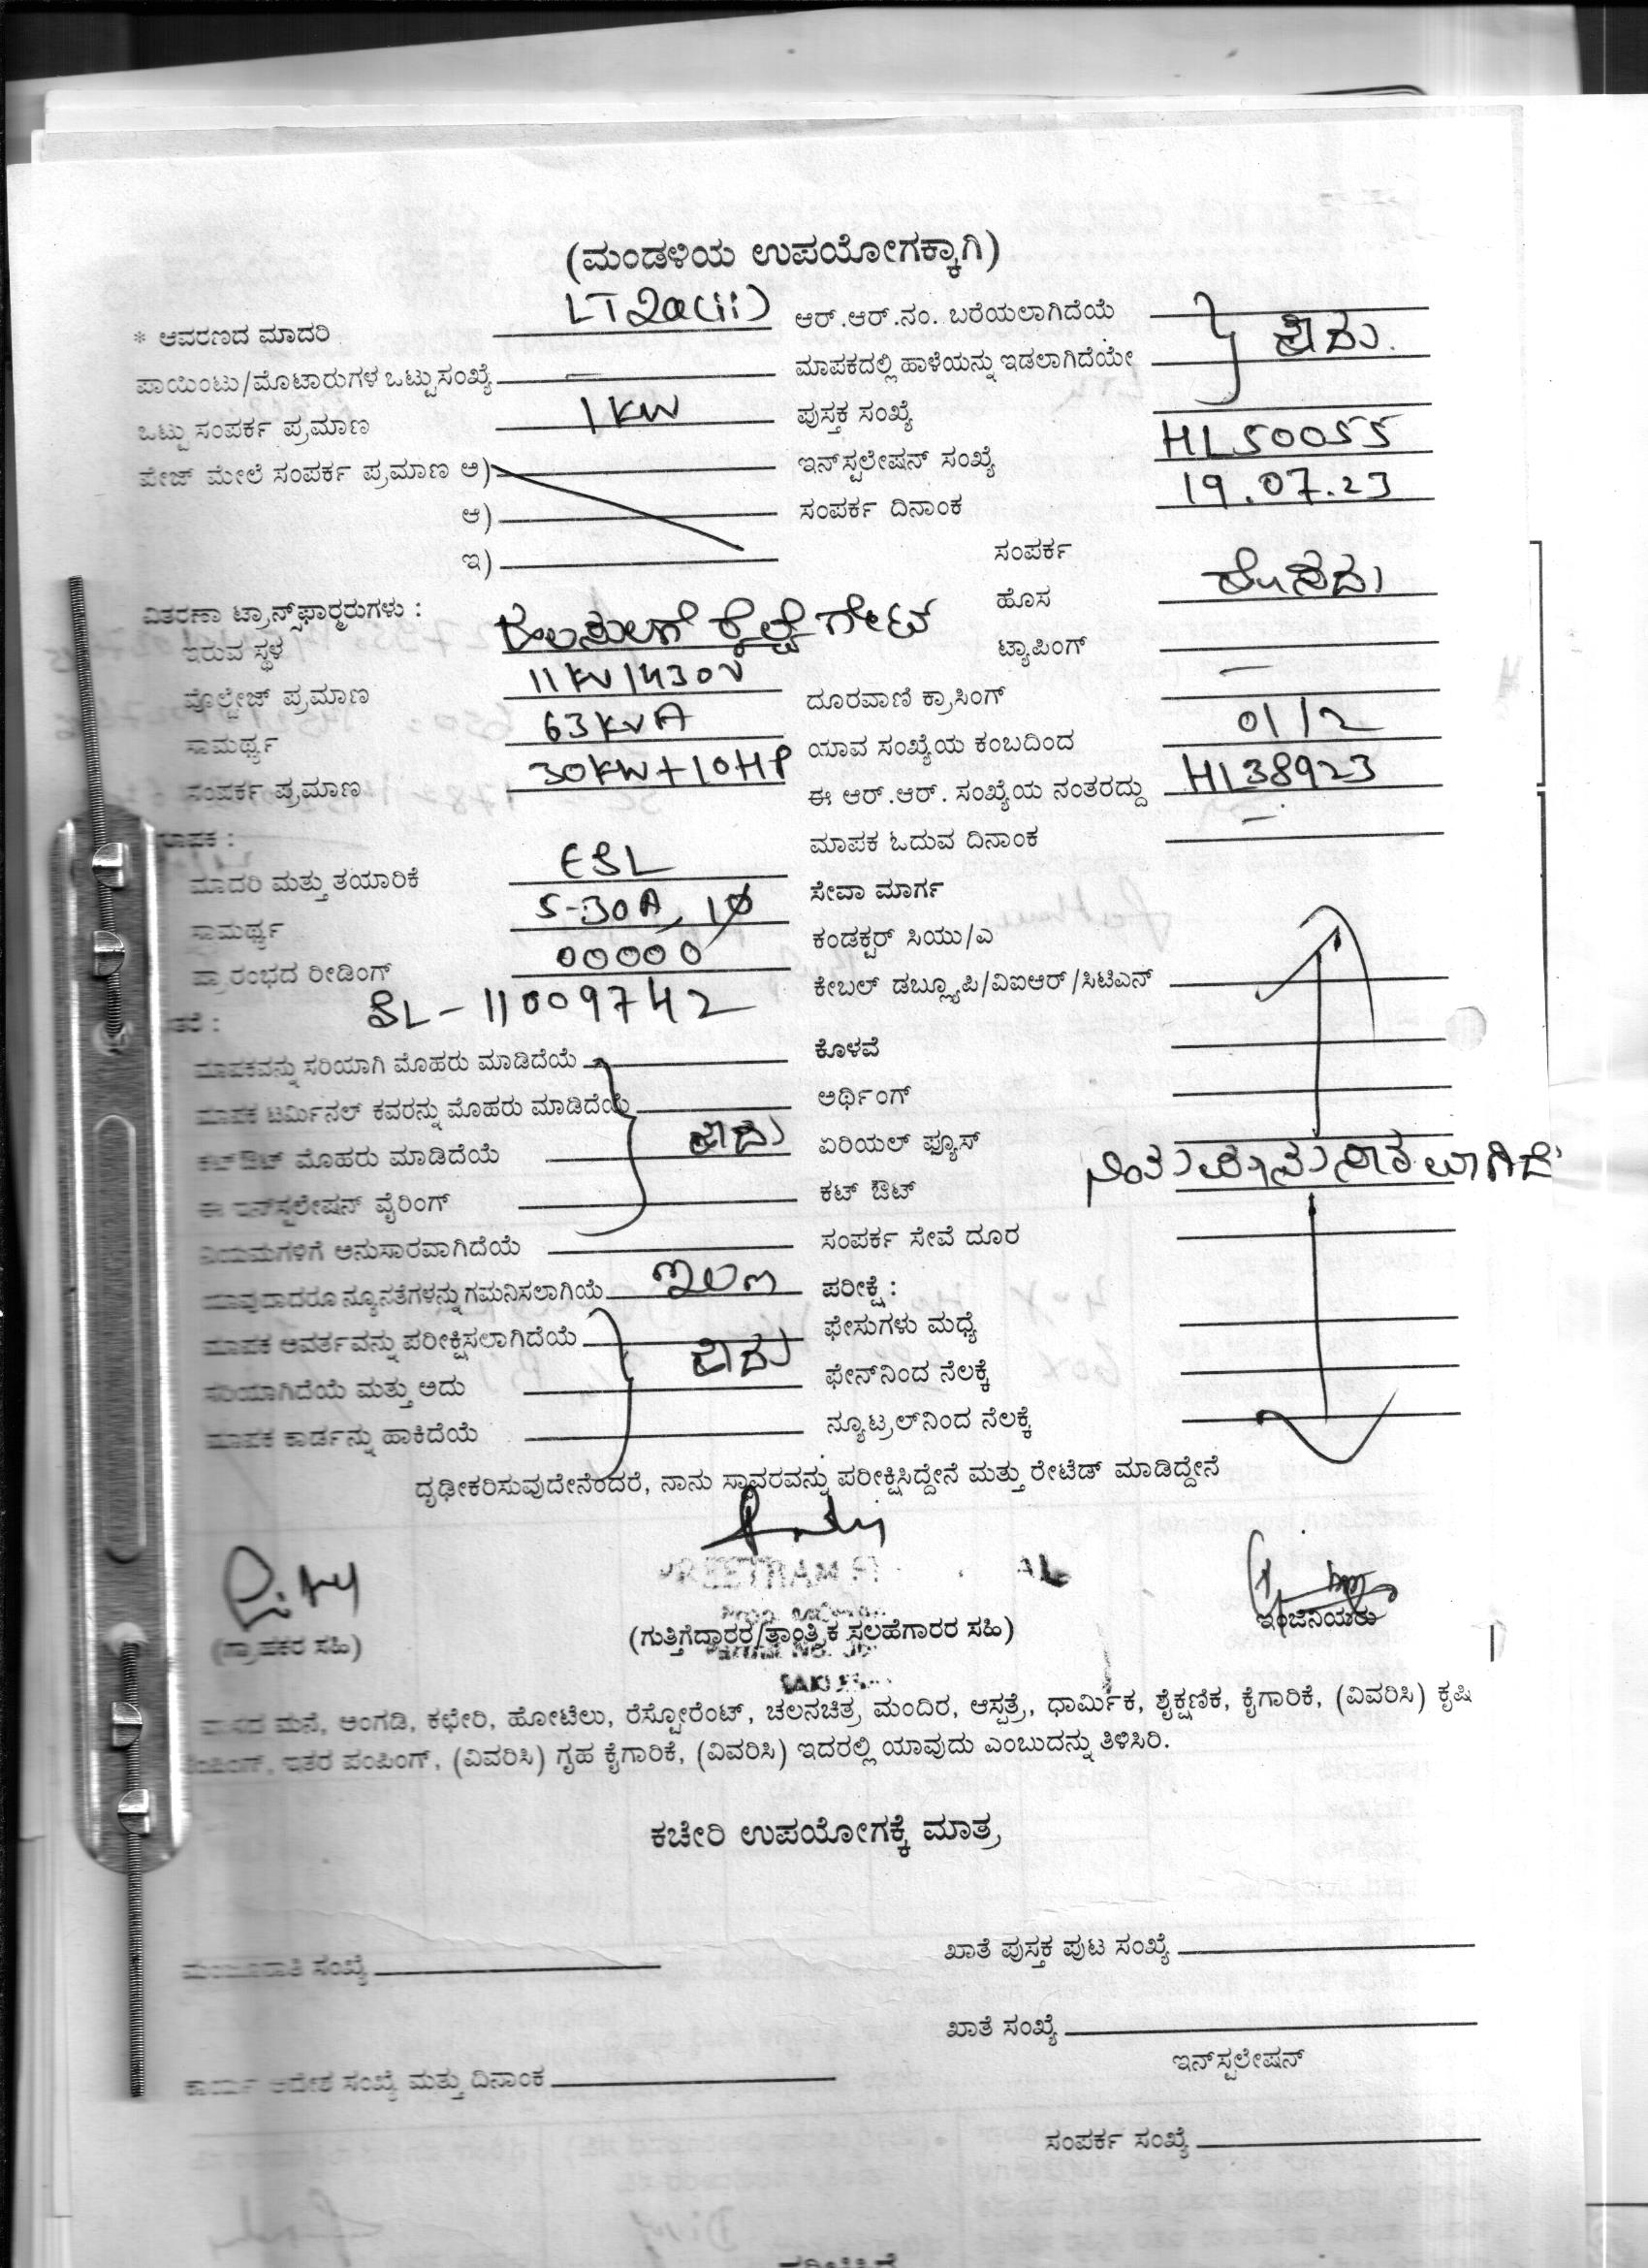 (ಮಂಡಳಿಯ ಉಪಯೋಗಕ್ಕಾಗಿ)
* ಆವರಣದ ಮಾದರಿ LT2a(ii) ಆರ್.ಆರ್.ನಂ. ಬರೆಯಲಾಗಿದೆಯೆ
ಪಾಯಿಂಟು/ಮೊಟಾರುಗಳ ಒಟ್ಟು ಸಂಖ್ಯೆ — ಮಾಪಕದಲ್ಲಿ ಹಾಳೆಯನ್ನು ಇಡಲಾಗಿದೆಯೇ
ಒಟ್ಟು ಸಂಪರ್ಕ ಪ್ರಮಾಣ 1KW ಪುಸ್ತಕ ಸಂಖ್ಯೆ
ಪೇಜ್ ಮೇಲೆ ಸಂಪರ್ಕ ಪ್ರಮಾಣ ಅ) ಇನ್‌ಸ್ಟಲೇಷನ್ ಸಂಖ್ಯೆ HL50055
ಆ) ಸಂಪರ್ಕ ದಿನಾಂಕ 19.07.23
ಇ) ಸಂಪರ್ಕ
ವಿತರಣಾ ಟ್ರಾನ್ಸ್‌ಫಾರ್ಮ್ರರುಗಳು : ಹೊಸ ಹೊಸದು
ಇರುವ ಸ್ಥಳ ಗೇಟ್ ಟ್ಯಾಪಿಂಗ್
ವೊಲ್ಟೇಜ್ ಪ್ರಮಾಣ 11KV/430V ದೂರವಾಣಿ ಕ್ರಾಸಿಂಗ್ —
ಸಾಮರ್ಥ್ಯ 63KVA ಯಾವ ಸಂಖ್ಯೆಯ ಕಂಬದಿಂದ 01/2
ಸಂಪರ್ಕ ಪ್ರಮಾಣ 30KW+10HP ಈ ಆರ್.ಆರ್. ಸಂಖ್ಯೆಯ ನಂತರದ್ದು HL38923
ಮಾಪಕ ಓದುವ ದಿನಾಂಕ —
ಮಾದರಿ ಮತ್ತು ತಯಾರಿಕೆ ಸೇವಾ ಮಾರ್ಗ
ಸಾಮರ್ಥ್ಯ 5-30A, 1Ø ಕಂಡಕ್ಟರ್ ಸಿಯು/ಎ
ಪ್ರಾರಂಭದ ರೀಡಿಂಗ್ 00000 ಕೇಬಲ್ ಡಬ್ಲ್ಯೂಪಿ/ವಿಐಆರ್/ಸಿಟಿಎನ್
SL-11009742
ಮಾಪಕವನ್ನು ಸರಿಯಾಗಿ ಮೊಹರು ಮಾಡಿದೆಯೆ ಕೊಳವೆ
ಮಾಪಕ ಟರ್ಮಿನಲ್ ಕವರನ್ನು ಮೊಹರು ಮಾಡಿದೆಯೆ ಅರ್ಥಿಂಗ್
ಕಟ್‌ಔಟ್ ಮೊಹರು ಮಾಡಿದೆಯೆ ಹೌದು ಏರಿಯಲ್ ಫ್ಯೂಸ್
ಈ ಇನ್‌ಸ್ಟಲೇಷನ್ ವೈರಿಂಗ್ ಕಟ್ ಔಟ್
ನಿಯಮಗಳಿಗೆ ಅನುಸಾರವಾಗಿದೆಯೆ ಸಂಪರ್ಕ ಸೇವೆ ದೂರ
ಯಾವುದಾದರೂ ನ್ಯೂನತೆಗಳನ್ನು ಗಮನಿಸಲಾಗಿಯೆ ಇಲ್ಲ ಪರೀಕ್ಷೆ :
ಮಾಪಕ ಆವರ್ತವನ್ನು ಪರೀಕ್ಷಿಸಲಾಗಿದೆಯೆ ಫೇಸುಗಳು ಮಧ್ಯೆ
ಸರಿಯಾಗಿದೆಯೆ ಮತ್ತು ಅದು ಫೇನ್‌ನಿಂದ ನೆಲಕ್ಕೆ
ಮಾಪಕ ಕಾರ್ಡನ್ನು ಹಾಕಿದೆಯೆ ನ್ಯೂಟ್ರಲ್‌ನಿಂದ ನೆಲಕ್ಕೆ
ದೃಢೀಕರಿಸುವುದೇನೆಂದರೆ, ನಾನು ಸ್ಥಾವರವನ್ನು ಪರೀಕ್ಷಿಸಿದ್ದೇನೆ ಮತ್ತು ರೇಟೆಡ್ ಮಾಡಿದ್ದೇನೆ
(ಗ್ರಾಹಕರ ಸಹಿ) (ಗುತ್ತಿಗೆದ್ದಾರರ/ತಾಂತ್ರಿಕ ಸಲಹೆಗಾರರ ಸಹಿ) ಇಂಜಿನಿಯರು
ವಾಸದ ಮನೆ, ಅಂಗಡಿ, ಕಛೇರಿ, ಹೋಟೆಲು, ರೆಸ್ಟೋರೆಂಟ್, ಚಲನಚಿತ್ರ ಮಂದಿರ, ಆಸ್ಪತ್ರೆ, ಧಾರ್ಮಿಕ, ಶೈಕ್ಷಣಿಕ, ಕೈಗಾರಿಕೆ, (ವಿವರಿಸಿ) ಕೃಷಿ
ಪಂಪಿಂಗ್, ಇತರ ಪಂಪಿಂಗ್, (ವಿವರಿಸಿ) ಗೃಹ ಕೈಗಾರಿಕೆ, (ವಿವರಿಸಿ) ಇದರಲ್ಲಿ ಯಾವುದು ಎಂಬುದನ್ನು ತಿಳಿಸಿರಿ.
ಕಚೇರಿ ಉಪಯೋಗಕ್ಕೆ ಮಾತ್ರ
ಮಂಜೂರಾತಿ ಸಂಖ್ಯೆ ಖಾತೆ ಪುಸ್ತಕ ಪುಟ ಸಂಖ್ಯೆ
ಖಾತೆ ಸಂಖ್ಯೆ
ಇನ್‌ಸ್ಟಲೇಷನ್
ಕಾರ್ಯ ಆದೇಶ ಸಂಖ್ಯೆ ಮತ್ತು ದಿನಾಂಕ
ಸಂಪರ್ಕ ಸಂಖ್ಯೆ